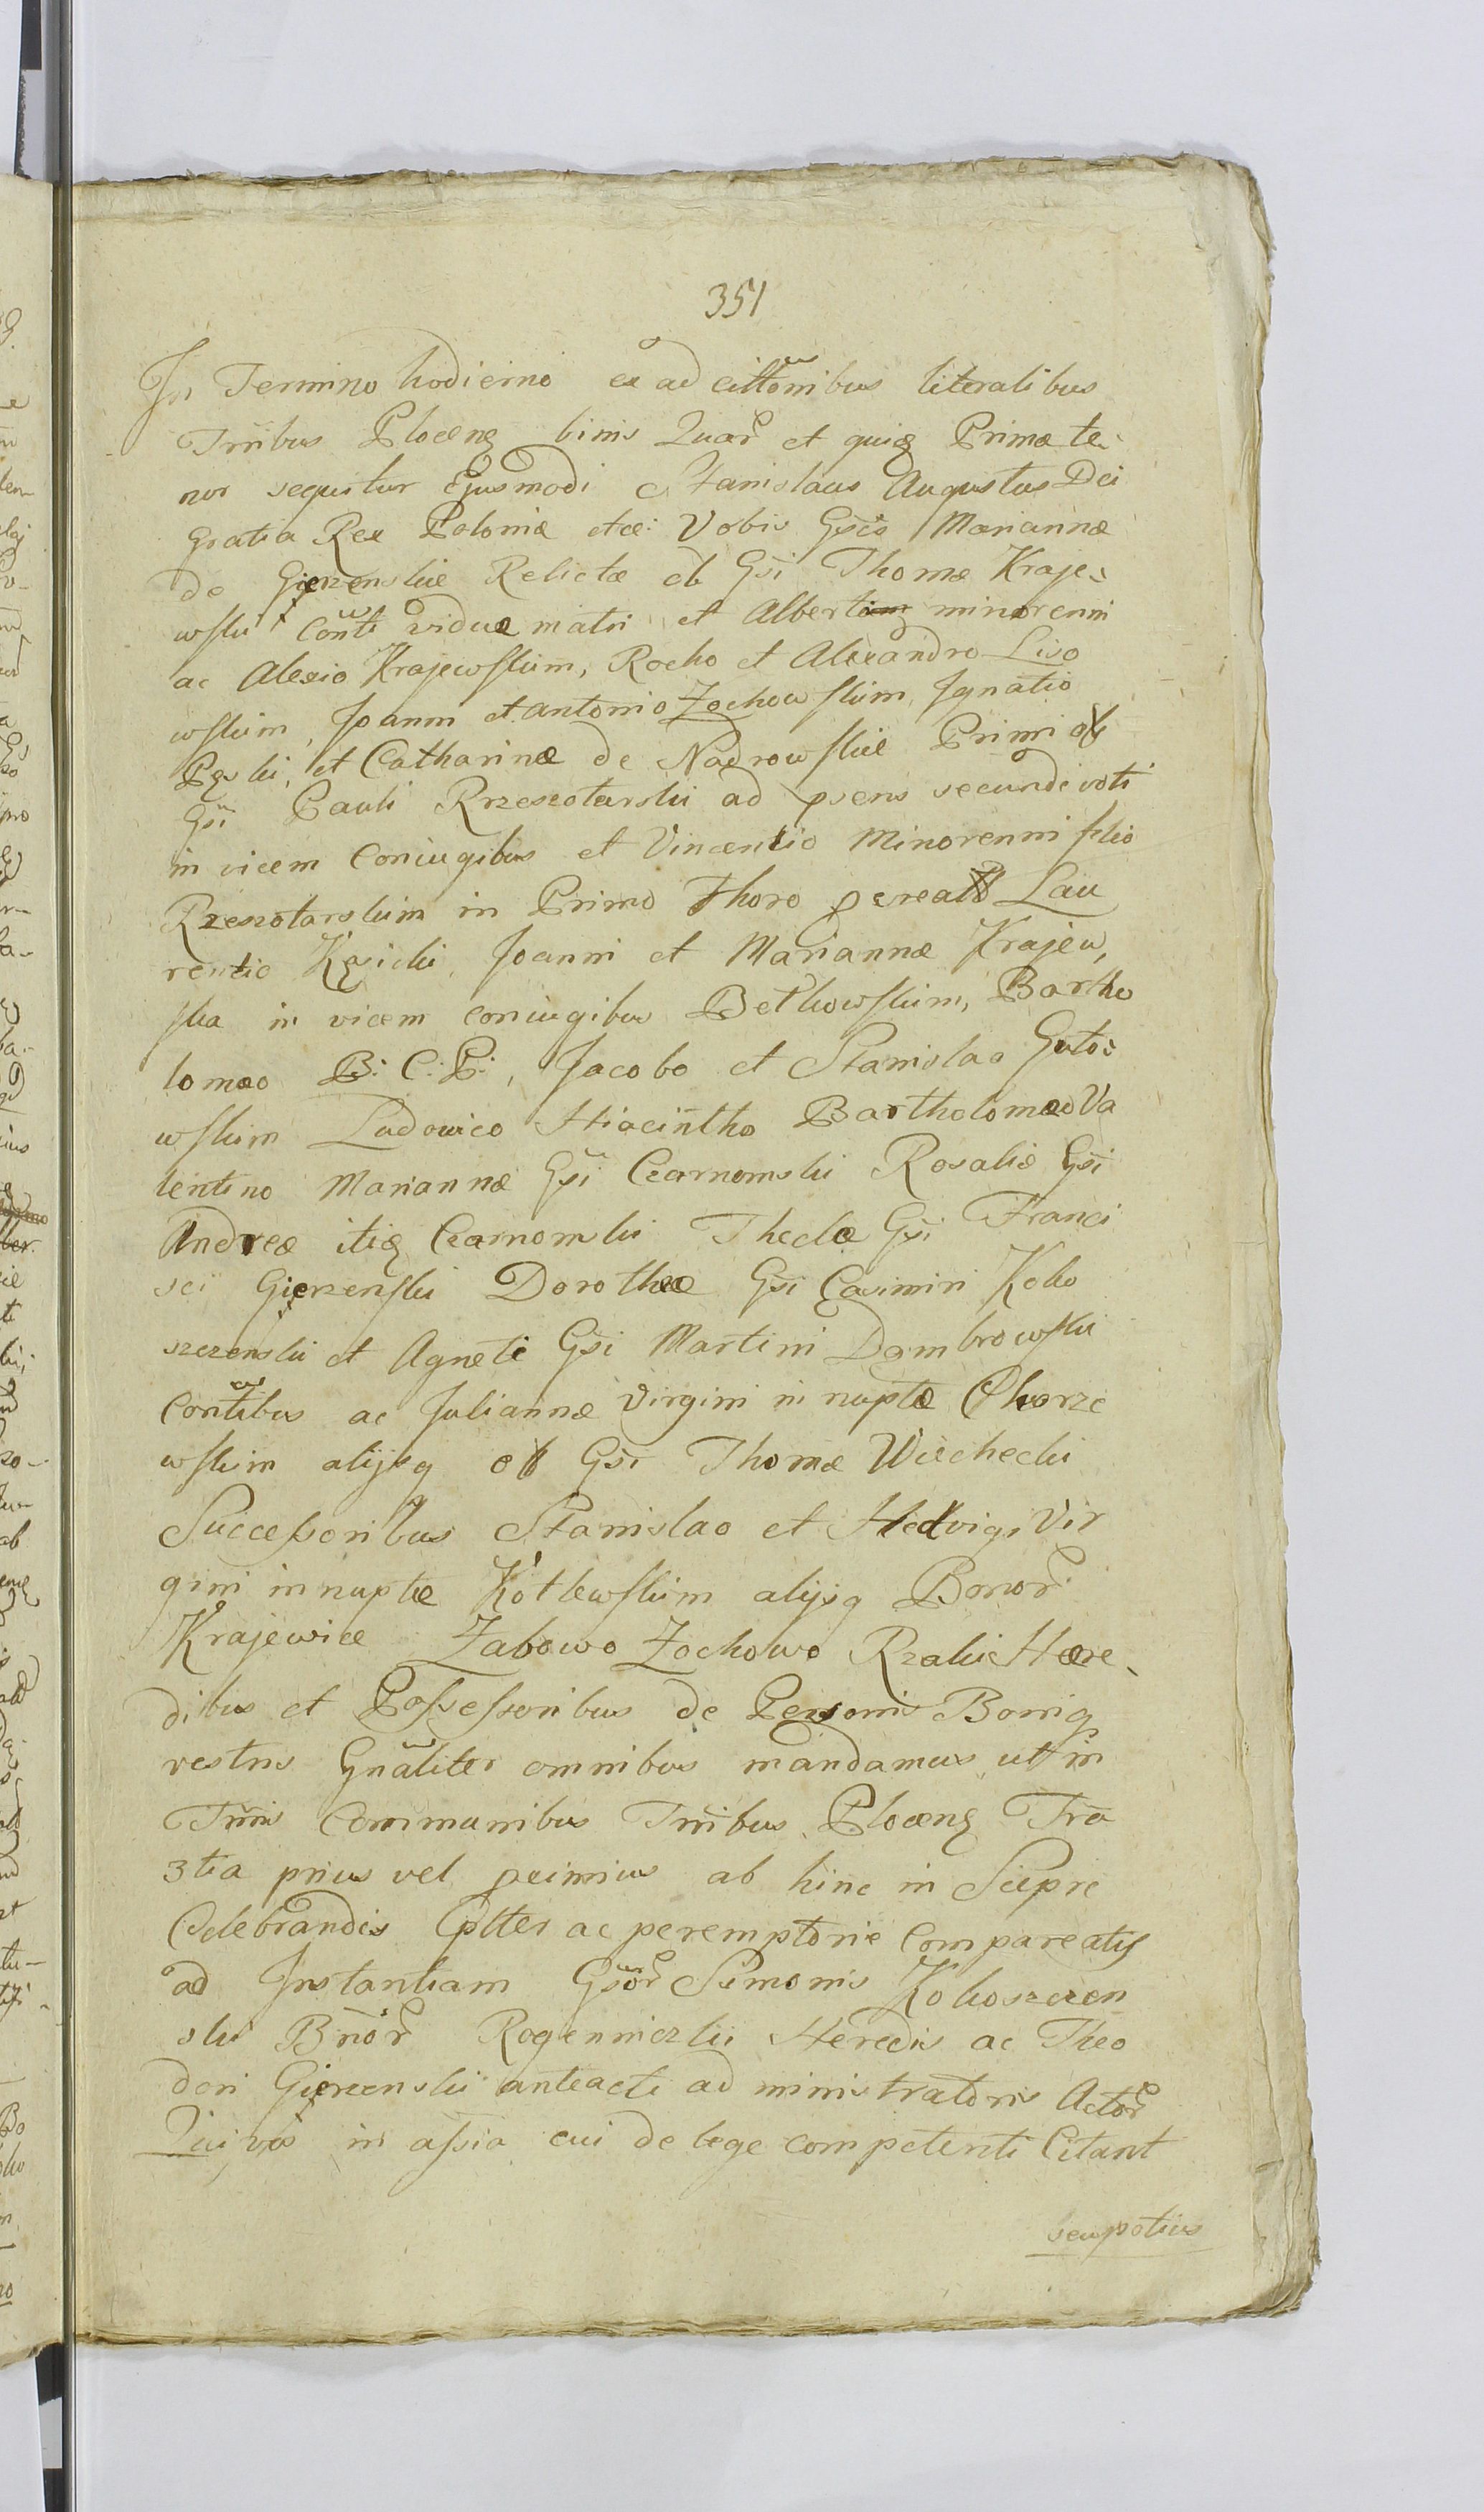 351
In Termino hodierno ex ad cittõnibus literalibus
Trribus Plocen binis Quar et quiq Primæ te-
nor sequitur Ejusmodi Stanislaus Augustus Dei
Gratia Rex Poloniæ etcæ: Vobis Gsis Mariannæ
de Gierzenskie Relictæ olb Gsi Thomæ Kraje-
wski Conti viduæ matri et Alberto minorenni
ac Alexio Krajewskim, Rocho et Alexandro Liso
wskim, Joanni et Antonio Zochowskim, Ignatio
Pęski, et Catharinæ de Nadrowskie Primi olb
Gsi Pauli Rzeszotarski ad psens secundi voti
in vicem Coniugibus et Vincentio Minorenni filio
Rzeszotarskim in Primo Thoro pcreato Lau
rentio Kęsicki, Joanni et Mariannæ Krajew,
ska in vicem coniugibus Betkowskim, Bartho
lomæo B: C: P:, Jacobo et Stanislao Guto-
wskim Ludovico Hiacintho Bartholomæo Va
lentino Mariannæ Gsi Czarnomski Rosaliæ Gsi
Andreæ itiq Czarnomski Theclæ Gsi Franci
sci Gierzenski Dorotheæ Gsi Casimiri Koko
szczenski et Agneti Gsi Martini Dąmbrowski
Contibus ac Juliannæ Virgini in nuptæ Chorze
wskim alijsq olb Gsi Thomæ Wiechecki
Successoribus Stanislao et Hedvigi Vir
gini innuptæ Kotlewskim alijsq Bonor
Krajewice Zabowo Zochowo Rzakie Hære-
dibus et Possessoribus de Personis Bonisq
vestris Gnaliter omnibus mandamus ut in
Trnis Communibus Trribus Plocen Fra
3tia prius vel pximius ab hinc in Sieprc
Celebrandis Cpltter ac peremptorie Compareatis
ad Instantiam Gsor Simonis Kokoszczen
ski Bnor Rogienniczki Heredis ac Theo
dori Gierzenski anteacti ad ministratoris Actor
Qui vos in assia cui de lege competenti Citant
seu potius